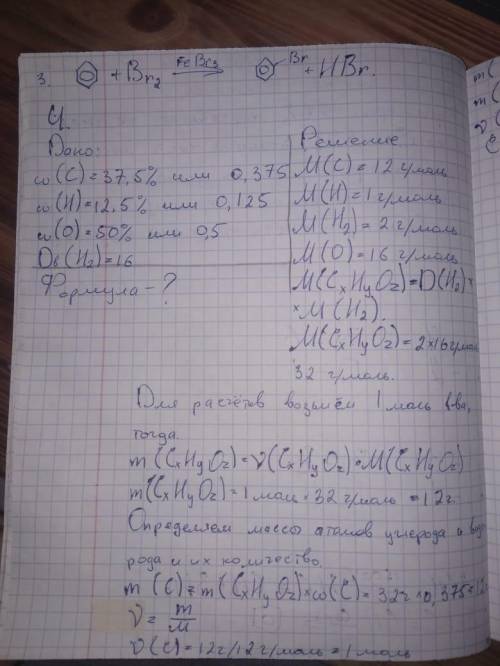 3. + Br2 FeBr3 Br + HBr.
4.
Дано:
ω(C)=37,5% или 0,375
ω(H)=12,5% или 0,125
ω(O)=50% или 0,5
Dв(H2)=16
Формула-?
Решение
M(C)=12 г/моль
M(H)=1 г/моль
M(H2)=2 г/моль
M(O)=16 г/моль
M(CxHyOz)=D(H2)×
×M(H2).
M(CxHyOz)=2×16 г/моль
32 г/моль.
Для расчётов возьмём 1 моль в-ва,
тогда.
m(CxHyOz)=ν(CxHyOz)•M(CxHyOz)
m(CxHyOz)=1 моль × 32 г/моль =
Определяем массы атомов углерода и водо
рода и их количество.
m(C)=m(CxHyOz)×ω(C)=32г×0,375=12
ν=m/M
ν(C)=12г/12 г/моль=1 моль
m(
m(
ν(